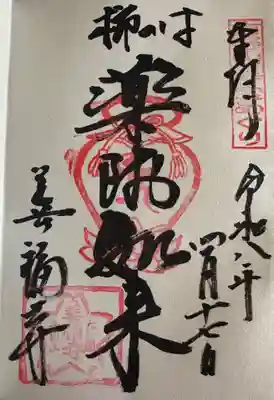 奉拝
令和八年
四月十七日
柳の
薬師如来
善福寺